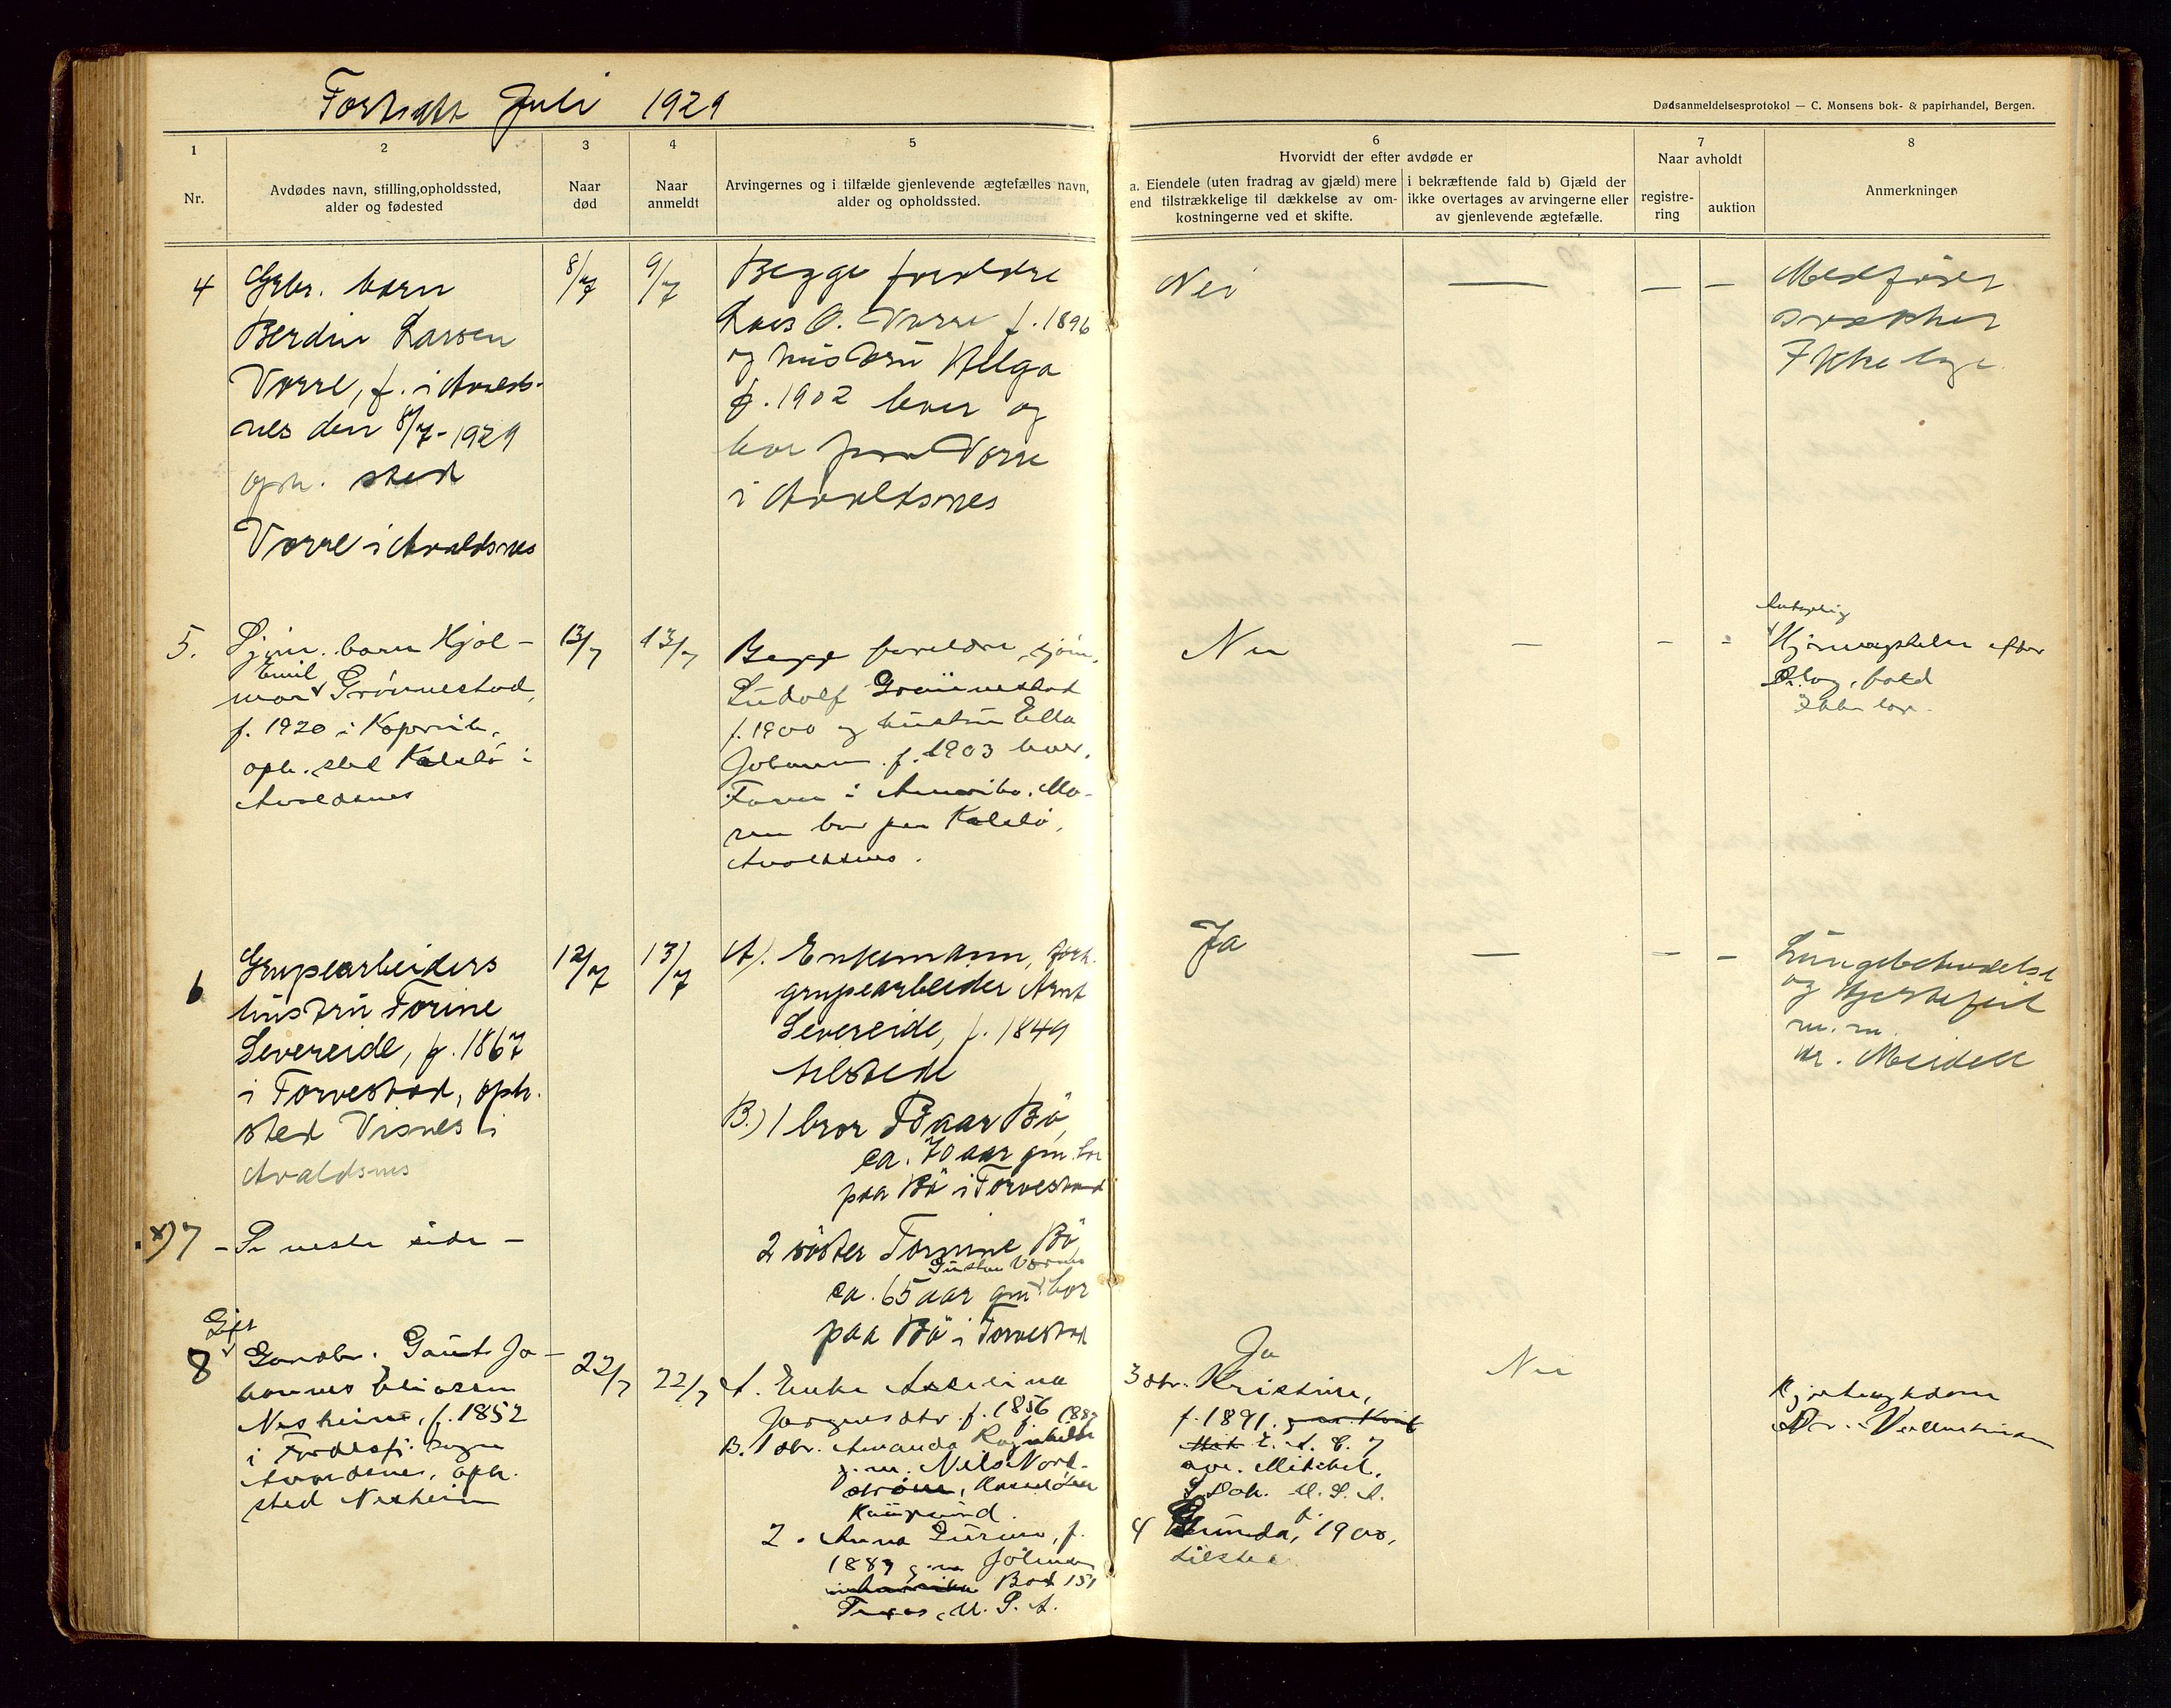 Fortsatt Juli 1929
Dødsanmeldelsesprotokol — C. Monsens bok- & papirhandel, Bergen.
1
Nr.
2
Avdødes navn, stilling, opholdssted,
alder og fødested
3
Naar
død
4
Naar
anmeldt
5
Arvingernes og i tilfælde gjenlevende ægtefælles navn,
alder og opholdssted.
6
Hvorvidt der efter avdøde er
a. Eiendele (uten fradrag av gjæld) mere
end tilstrækkelige til dækkelse av om-
kostningerne ved et skifte.
i bekræftende fald b) Gjæld der
ikke overtages av arvingerne eller
av gjenlevende ægtefælle.
7
Naar avholdt
registre-
ring
auktion
8
Anmerkninger
4
Grbr. barn
Berdin Larsen
Vorre, f. i Avalds-
nes den 8/7-1929
oph. sted
Vorre i Avaldsnes
8/7
9/7
Begge foreldre
Lars O. Vorre f. 1896
og hustru Helga
f. 1902 lever og
bor paa Vorre
i Avaldsnes
Nei
—
—
—
Medfødt
svakhet
Ikke lege
5.
Sjøm. barn Hjal-
Emil
mar Grønnestad,
f. 1920 i Kopervik,
oph. sted Kalslø i
Avaldsnes
13/7
13/7
Begge foreldre, sjøm.
Ludolf Grønnestad
f. 1900 og hustru Ella
Johanne f. 1903 lever.
Faren i Amerika. Mo-
ren bor paa Kalslø,
Avaldsnes.
Nei
—
—
-
Antagelig
Hjernerystelse efter
slag, fald
Ikke læge
6
Grupearbeiders
hustru Torine
Severeide, f. 1867
i Torvestad, oph.
sted Visnes i
Avaldsnes
12/7
13/7
A). Enkemann, forh.
grupearbeider Arnt
Severeide, f. 1849
tilstede
B.) 1 bror Baar Bö,
ca. 70 aar gm. bor
paa Bö i Torvestad
2 søster Tormine Bö
ca. 65 aar gm bor
paa Bö i Torvestad
Ja
—
—
—
Lungebetendelse
og Hjertefeil
m.m.
dr. Meidell
x) 7 - Se neste side -
Gft
8
Gardbr. Gaut Jo-
hannes Eliassen
Nesheim, f. 1852
i Førdesfj. sogn
Avaldsnes, oph.
sted Nesheim
22/7
22/7
A. Enke Asseline
Jørgensdtr. f. 1856
B. 1 dtr. Amanda Ragnhilda
f. 1882
g.m. Nils Nord-
strøm,
Haugesund.
2. Anna Gurine, f.
1887 g.m.
i Amerika Box 151
Texas, U. S. A.
Ja
3 dtr. Kristine,
f. 1891.
ave. Mitchel,
S. Dak. U. S. A.
4 Gunda, f. 1900,
tilsted
Nei
Hjertesykdom
Dr.